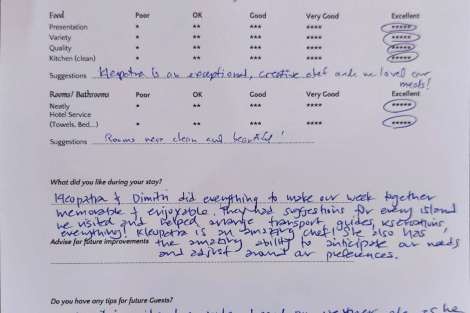 Food Poor OK Good Very Good Excellent
Presentation * ** *** **** *****
Variety * ** *** **** *****
Quality * ** *** **** *****
Kitchen (clean) * ** *** **** *****
Suggestions Kleopatra is an exceptional, creative chef and we loved our
meals!
Rooms/ Bathrooms Poor OK Good Very Good Excellent
Neatly * ** *** **** *****
Hotel Service
(Towels, Bed...) * ** *** **** *****
Suggestions Rooms were clean and beautiful!
What did you like during your stay?
Kleopatra & Dimitri did everything to make our week together
memorable & enjoyable. They had suggestions for every island
we visited and helped arrange transport, guides, reservations,
everything! Kleopatra is an amazing chef! She also has
Advise for future improvements the amazing ability to anticipate our needs
and adjust around our preferences.
Do you have any tips for future Guests?